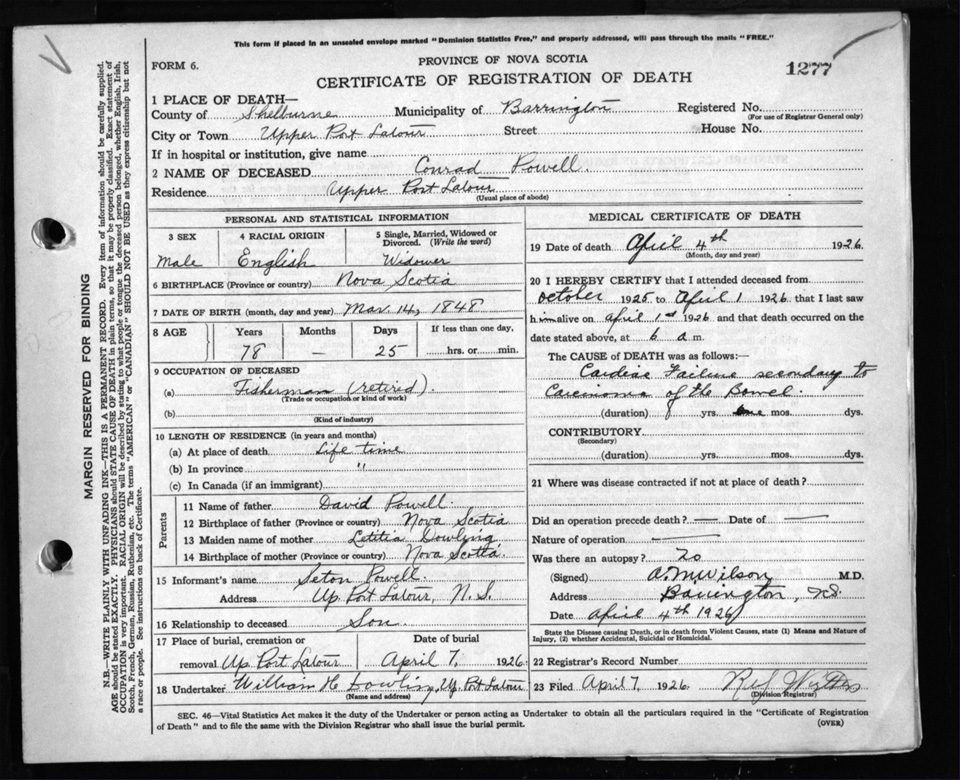 This form if placed in an unsealed envelope marked "Dominion Statistics Free," and properly addressed, will pass through the mails "FREE."
FORM 6.
PROVINCE OF NOVA SCOTIA
CERTIFICATE OF REGISTRATION OF DEATH
1277
1 PLACE OF DEATH—
County of Shelburne Municipality of Barrington Registered No.
(For use of Registrar General only)
City or Town Upper Port Latour Street House No.
If in hospital or institution, give name
2 NAME OF DECEASED Conrad Powell.
Residence Upper Port Latour
(Usual place of abode)
PERSONAL AND STATISTICAL INFORMATION
3 SEX 4 RACIAL ORIGIN 5 Single, Married, Widowed or Divorced. (Write the word)
Male English Widower
6 BIRTHPLACE (Province or country) Nova Scotia
7 DATE OF BIRTH (month, day and year) Mar. 14, 1848
8 AGE Years Months Days If less than one day,
78 — 25 hrs. or min.
9 OCCUPATION OF DECEASED
(a) Fisherman (retired).
(Trade or occupation or kind of work)
(b)
(Kind of industry)
10 LENGTH OF RESIDENCE (in years and months)
(a) At place of death Life time
(b) In province "
(c) In Canada (if an immigrant)
Parents
11 Name of father David Powell.
12 Birthplace of father (Province or country) Nova Scotia
13 Maiden name of mother Letitia Dowling
14 Birthplace of mother (Province or country) Nova Scotia.
15 Informant's name Seton Powell.
Address Up. Port Latour, N.S.
16 Relationship to deceased Son.
17 Place of burial, cremation or Date of burial
removal Up. Port Latour April 7, 1926
18 Undertaker William H. Dowling, Up. Port Latour
(Name and address)
MEDICAL CERTIFICATE OF DEATH
19 Date of death April 4th 1926
(Month, day and year)
20 I HEREBY CERTIFY that I attended deceased from
October 1925 to April 1 1926 that I last saw
him alive on April 1st 1926 and that death occurred on the
date stated above, at 6 a.m.
The CAUSE of DEATH was as follows:—
Cardiac Failure secondary to
Carcinoma of the Bowel.
(duration) yrs. mos. dys.
CONTRIBUTORY
(Secondary)
(duration) yrs. mos. dys.
21 Where was disease contracted if not at place of death?
Did an operation precede death? — Date of —
Nature of operation —
Was there an autopsy? No
(Signed) A.M. Wilson M.D.
Address Barrington, N.S.
Date April 4th 1926
State the Disease causing Death, or in death from Violent Causes, state (1) Means and Nature of
Injury, (2) whether Accidental, Suicidal or Homicidal.
22 Registrar's Record Number
23 Filed April 7, 1926
(Division Registrar)
SEC. 46—Vital Statistics Act makes it the duty of the Undertaker or person acting as Undertaker to obtain all the particulars required in the "Certificate of Registration
of Death" and to file the same with the Division Registrar who shall issue the burial permit. (OVER)
MARGIN RESERVED FOR BINDING
N.B.—WRITE PLAINLY WITH UNFADING INK—THIS IS A PERMANENT RECORD. Every item of information should be carefully supplied.
AGE should be stated EXACTLY. PHYSICIANS should STATE CAUSE OF DEATH in plain terms, so that it may be properly classified. Exact statement of
OCCUPATION is very important. RACIAL ORIGIN will be described by stating to what people or tongue the deceased person belonged, whether English, Irish,
Scotch, French, German, Russian, Ruthenian, etc. The terms "AMERICAN" or "CANADIAN" SHOULD NOT BE USED as they express citizenship but not
a race or people. See instructions on back of Certificate.